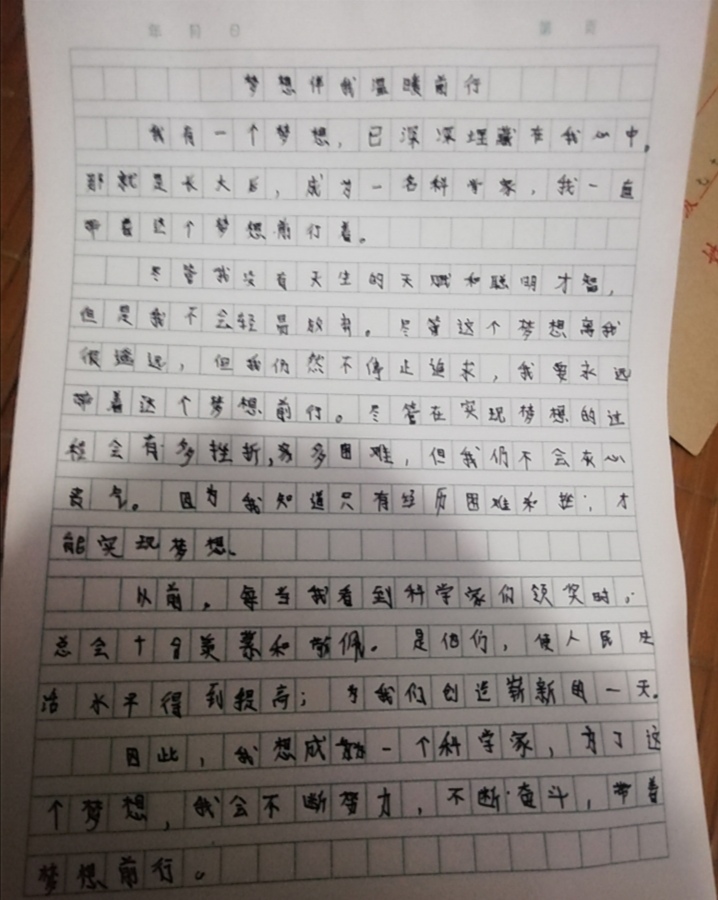 年 月 日 第 页
梦想伴我温暖前行
我有一个梦想，已深深埋藏在我心中。
那就是长大后，成为一名科学家，我一直
带着这个梦想前行着。
尽管我没有天生的天赋和聪明才智，
但是我不会轻易放弃。尽管这个梦想离我
很遥远，但我仍然不停止追求，我要永远
带着这个梦想前行。尽管在实现梦想的过
程会有多挫折，多困难，但我仍不会灰心
丧气。因为我知道只有经历困难和挫，才
能实现梦想。
以前，每当我看到科学家们领奖时，
总会十分羡慕和敬佩。是他们，使人民生
活水平得到提高；为我们创造崭新的一天。
因此，我想成为一个科学家，为了这
个梦想，我会不断努力，不断奋斗，带着
梦想前行。